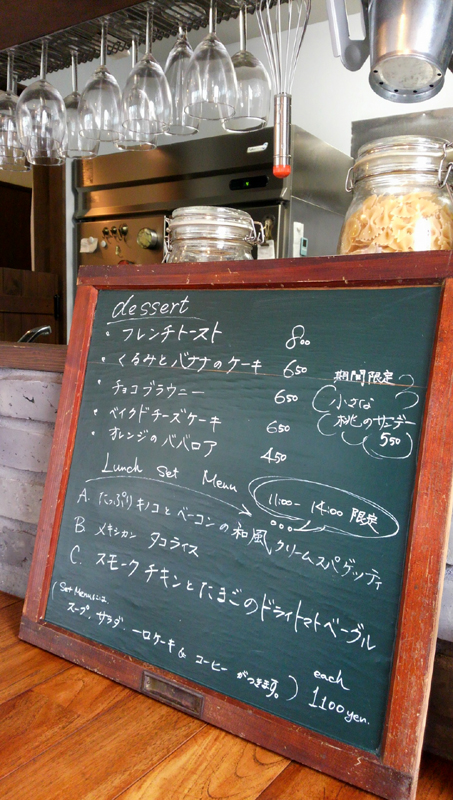 dessert
・フレンチトースト 800
・くるみとバナナのケーキ 650
・チョコブラウニー 650
・ベイクドチーズケーキ 650
・オレンジのババロア 450
期間限定
小さな
桃のサンデー
550
Lunch Set Menu
11:00- 14:00 限定
A. たっぷりキノコとベーコンの和風クリームスパゲッティ
B. メキシカン タコライス
C. スモークチキンとたまごのドライトマトベーグル
(Set Menuには
スープ、サラダ、一口ケーキ & コーヒー がつきます。)
each
1100 yen.